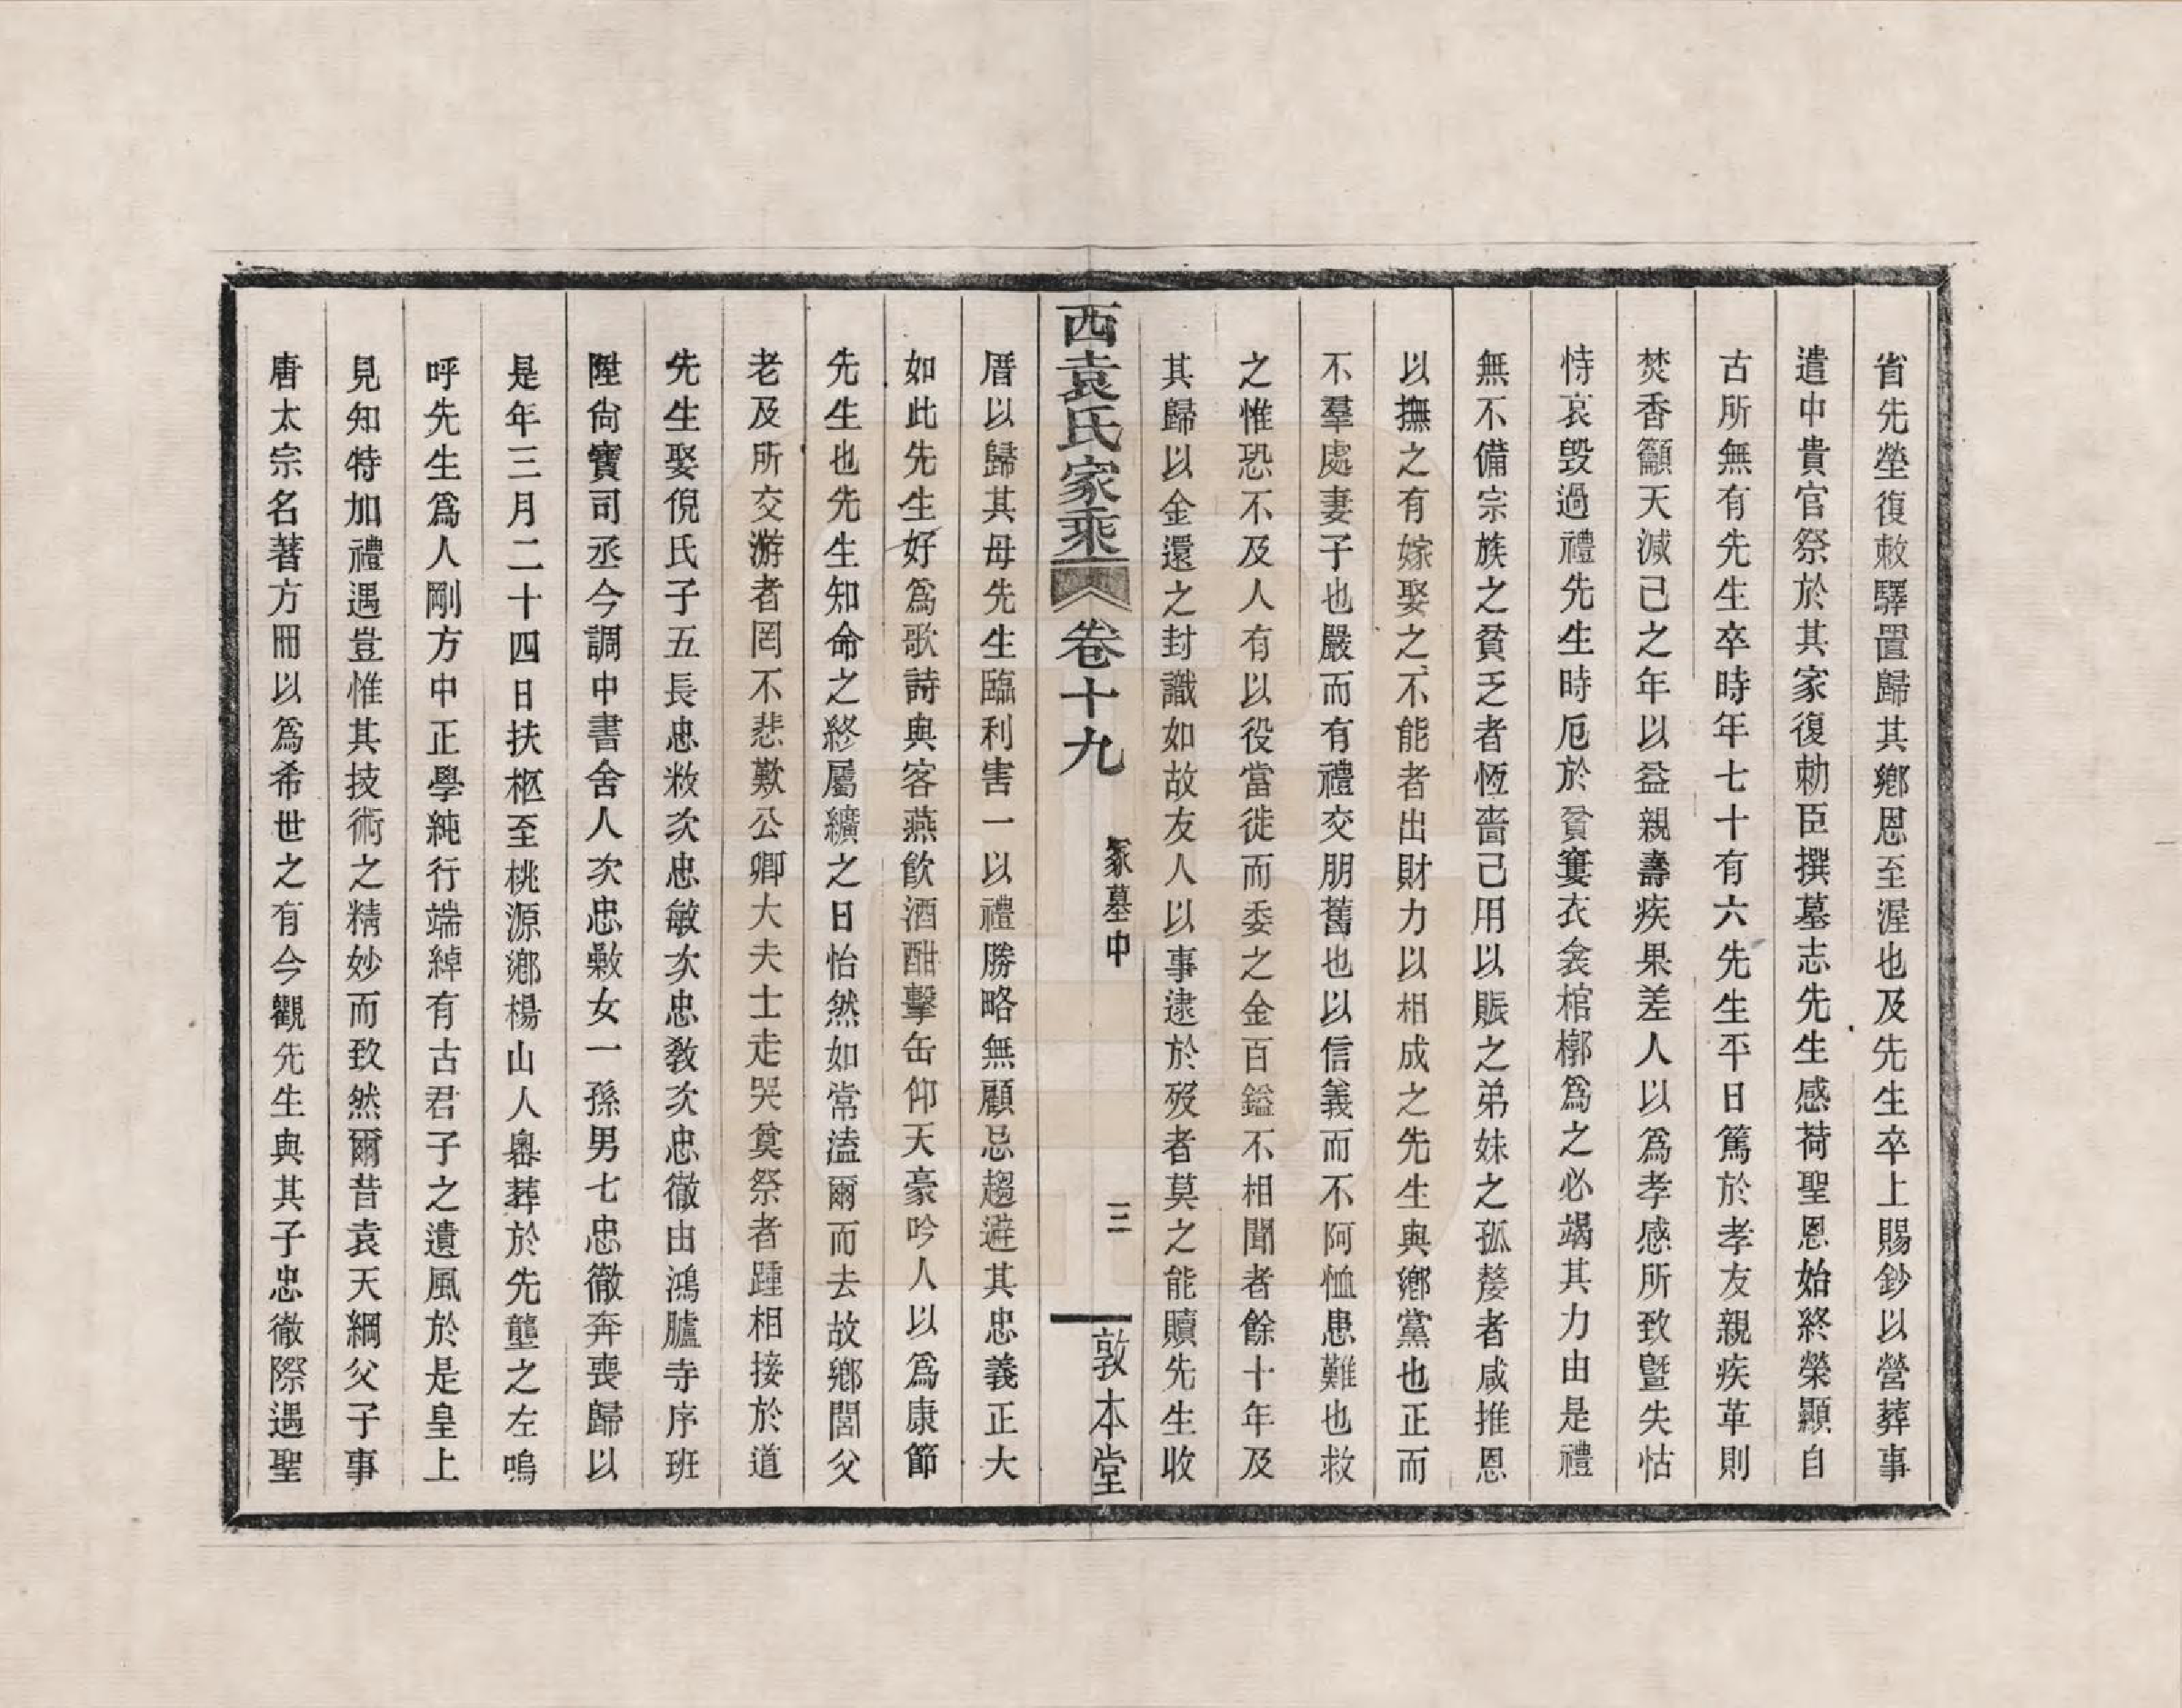 省先塋復敕驛置歸其鄉恩至渥也及先生卒上賜鈔以營葬事
遣中貴官祭於其家復勅臣撰墓志先生感荷聖恩始終榮顯自
古所無有先生卒時年七十有六先生平日篤於孝友親疾革則
焚香籲天減已之年以益親壽疾果差人以爲孝感所致曁失怙
恃哀毀過禮先生時厄於貧窶衣衾棺槨爲之必竭其力由是禮
無不備宗族之貧乏者恆嗇己用以賑之弟妹之孤嫠者咸推恩
以撫之有嫁娶之不能者出財力以相成之先生與鄉黨也正而
不羣處妻子也嚴而有禮交朋舊也以信義而不阿恤患難也救
之惟恐不及人有以役當徙而委之金百鎰不相聞者餘十年及
其歸以金還之封識如故友人以事逮於歿者莫之能贖先生收
西袁氏家乘 卷十九 冢墓中 三 敦本堂
厝以歸其母先生臨利害一以禮勝略無顧忌趨避其忠義正大
如此先生好爲歌詩與客燕飮酒酣擊缶仰天豪吟人以爲康節
先生也先生知命之終屬纊之日怡然如常溘爾而去故鄉閭父
老及所交游者罔不悲歎公卿大夫士走哭奠祭者踵相接於道
先生娶倪氏子五長忠敉次忠敏次忠敎次忠徹由鴻臚寺序班
陞尙寶司丞今調中書舍人次忠㪤女一孫男七忠徹奔喪歸以
是年三月二十四日扶柩至桃源鄉楊山人𡻕葬於先壟之左嗚
呼先生爲人剛方中正學純行端綽有古君子之遺風於是皇上
見知特加禮遇豈惟其技術之精妙而致然爾昔袁天綱父子事
唐太宗名著方冊以爲希世之有今觀先生與其子忠徹際遇聖